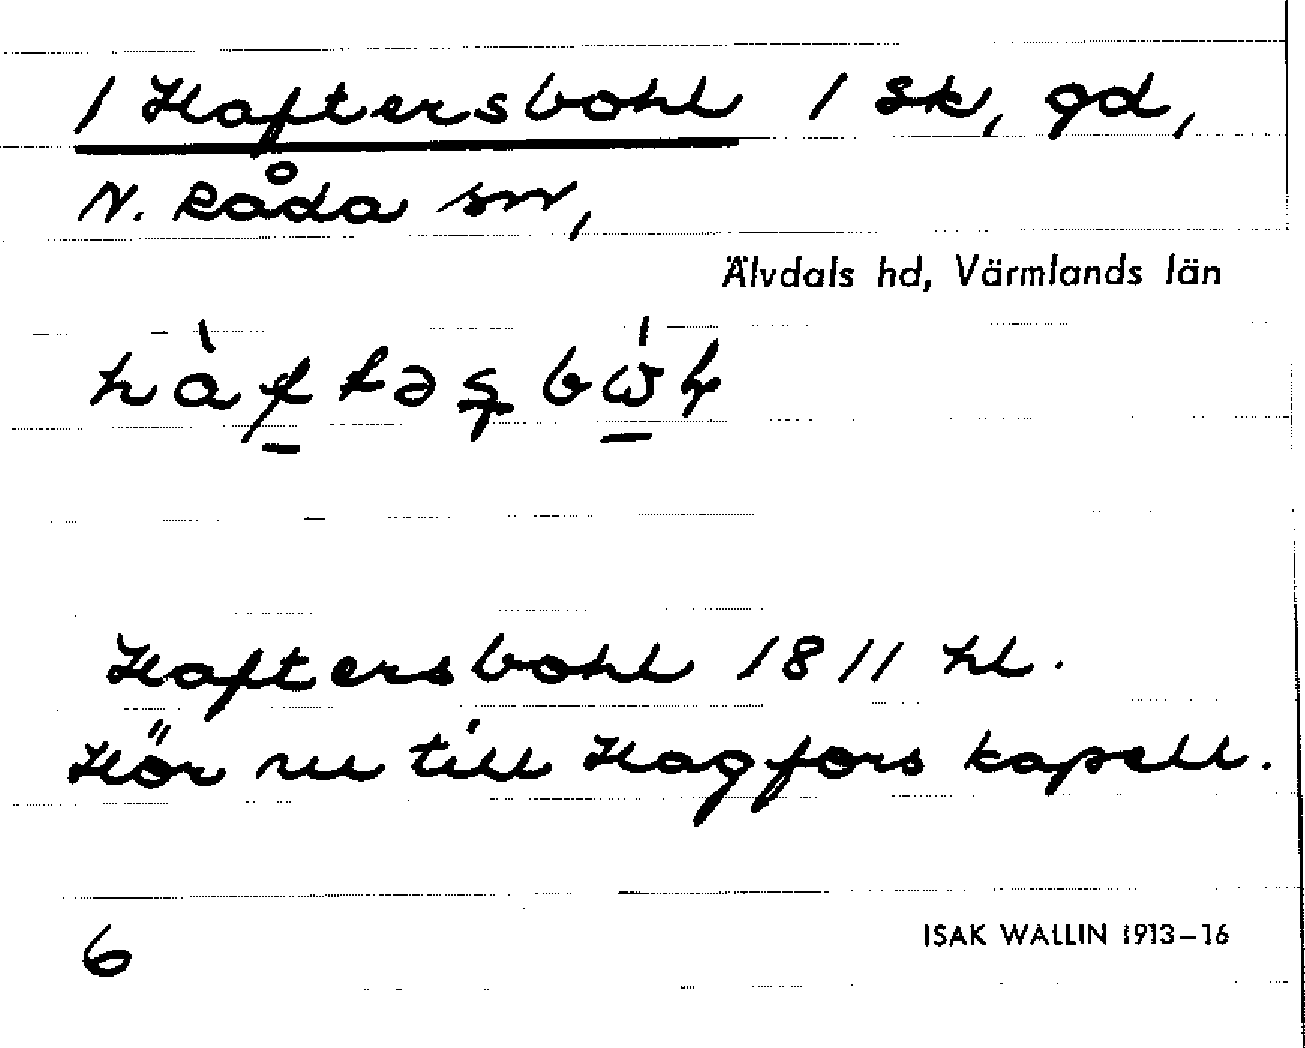 / Haftersbohl / sk, gd,
N. Råda sn,
Älvdals hd, Värmlands län
Haftersbohl 1811 hl.
Hör nu till Hagfors kapell.
6
ISAK WALLIN 1913-16